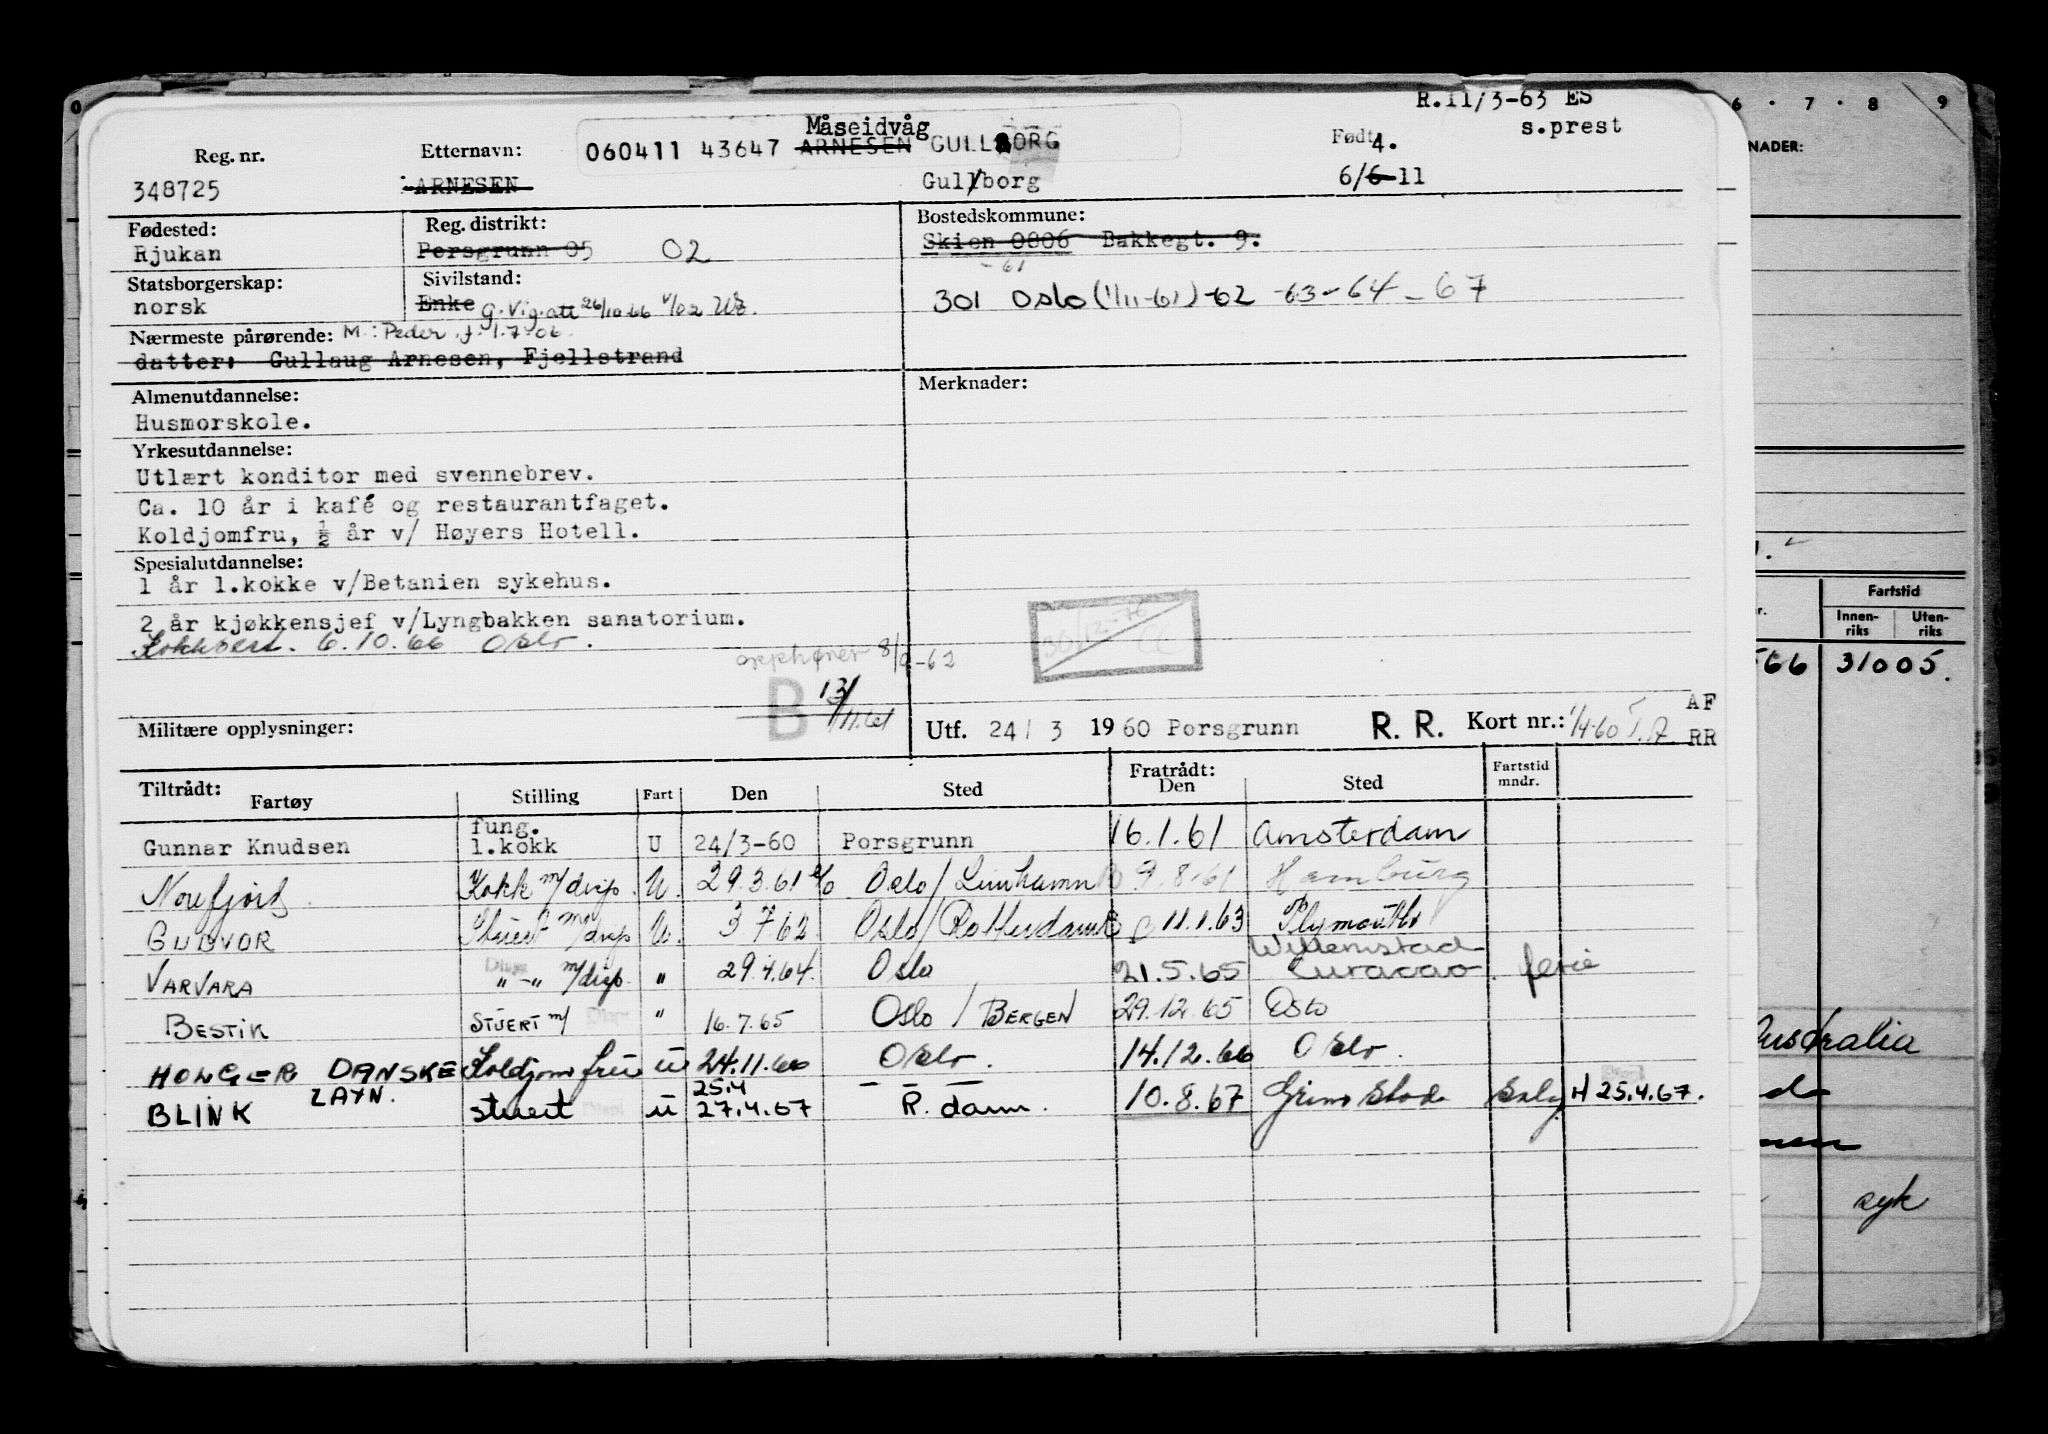 R.11/3-63 ES
s.prest
Måseidvåg
Reg. nr. Etternavn: 060411 43647 ARNESEN GULLBORG Født 4.
348725 ARNESEN Gullborg 6/6-11
Fødested: Reg. distrikt: Bostedskommune:
Rjukan Porsgrunn 05 02 Skien 0806 Bakkegt. 9.
-61
Statsborgerskap: Sivilstand:
norsk Enke g. Vig.att 26/10-66 301 Oslo (1/11-61)-62 -63-64-67
Nærmeste pårørende: M: Peder f. 1.7.06
datter: Gullaug Arnesen, Fjellstrand
Almenutdannelse: Merknader:
Husmorskole.
Yrkesutdannelse:
Utlært konditor med svennebrev.
Ca. 10 år i kafé og restaurantfaget.
Koldjomfru, ½ år v/ Høyers Hotell.
Spesialutdannelse:
1 år 1.kokke v/Betanien sykehus.
2 år kjøkkensjef v/Lyngbakken sanatorium.
Kokksert. 6.10.66 Oslo.
30/12-76
B 13/11.61
Militære opplysninger: Utf. 24/3 1960 Porsgrunn R. R. Kort nr.: 1/4-60 AF
RR
Tiltrådt: Fratrådt: Fartstid
Fartøy Stilling Fart Den Sted Den Sted mndr.
Gunnar Knudsen fung. 1.kokk U 24/3-60 Porsgrunn 16.1.61 Amsterdam
Norefjord Kokk m/disp. U. 29.3.61 Oslo/Limhamn 9.8.61 Hamburg
GUDVOR Stuert m/disp U. 3 7 62 Oslo/Rotterdam 11.1.63 Plymouth
VARVARA " - " m/disp. " 29.4.64. Oslo 21.5.65 Willemstad Curacao ferie
BESTIK STUERT m/ Disp " 16.7.65 Oslo / BERGEN 29.12.65 Oslo
HOLGER DANSKE Koldjomfru u 24.11.66 Oslo. 14.12.66 Oslo.
BLINK LAYN. stuert u 25.4 27.4.67 R.dam. 10.8.67 Grimstad Salg H 25.4.67.
6 · 7 · 8 9
NADER:
Fartstid
Innenriks Utenriks
566 31005.
Australia
syk